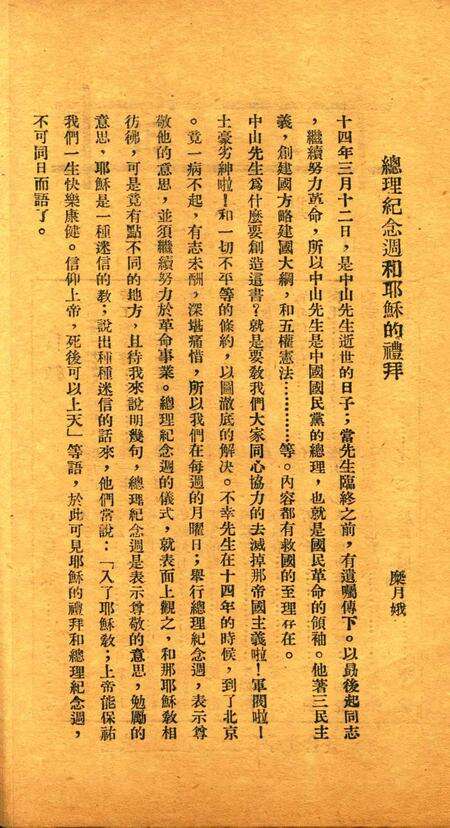 總理紀念週和耶穌的禮拜
糜月娥
十四年三月十二日，是中山先生逝世的日子；當先生臨終之前，有遺囑傳下。以勗後起同志
，繼續努力革命，所以中山先生是中國國民黨的總理，也就是國民革命的領袖。他著三民主
義，創建國方略建國大綱，和五權憲法……………等。內容都有救國的至理存在。
中山先生爲什麼要創造這書？就是要敎我們大家同心協力的去滅掉那帝國主義啦！軍閥啦！
土豪劣紳啦！和一切不平等的條約，以圖澈底的解決。不幸先生在十四年的時候，到了北京
。竟一病不起，有志未酬，深堪痛惜，所以我們在每週的月曜日；舉行總理紀念週，表示尊
敬他的意思，並須繼續努力於革命事業。總理紀念週的儀式，就表面上觀之，和那耶穌敎相
彷彿，可是竟有點不同的地方，且待我來說明幾句，總理紀念週是表示尊敬的意思，勉勵的
意思，耶穌是一種迷信的敎；說出種種迷信的話來，他們常說：「入了耶穌敎；上帝能保祐
我們一生快樂康健。信仰上帝，死後可以上天」等語，於此可見耶穌的禮拜和總理紀念週，
不可同日而語了。